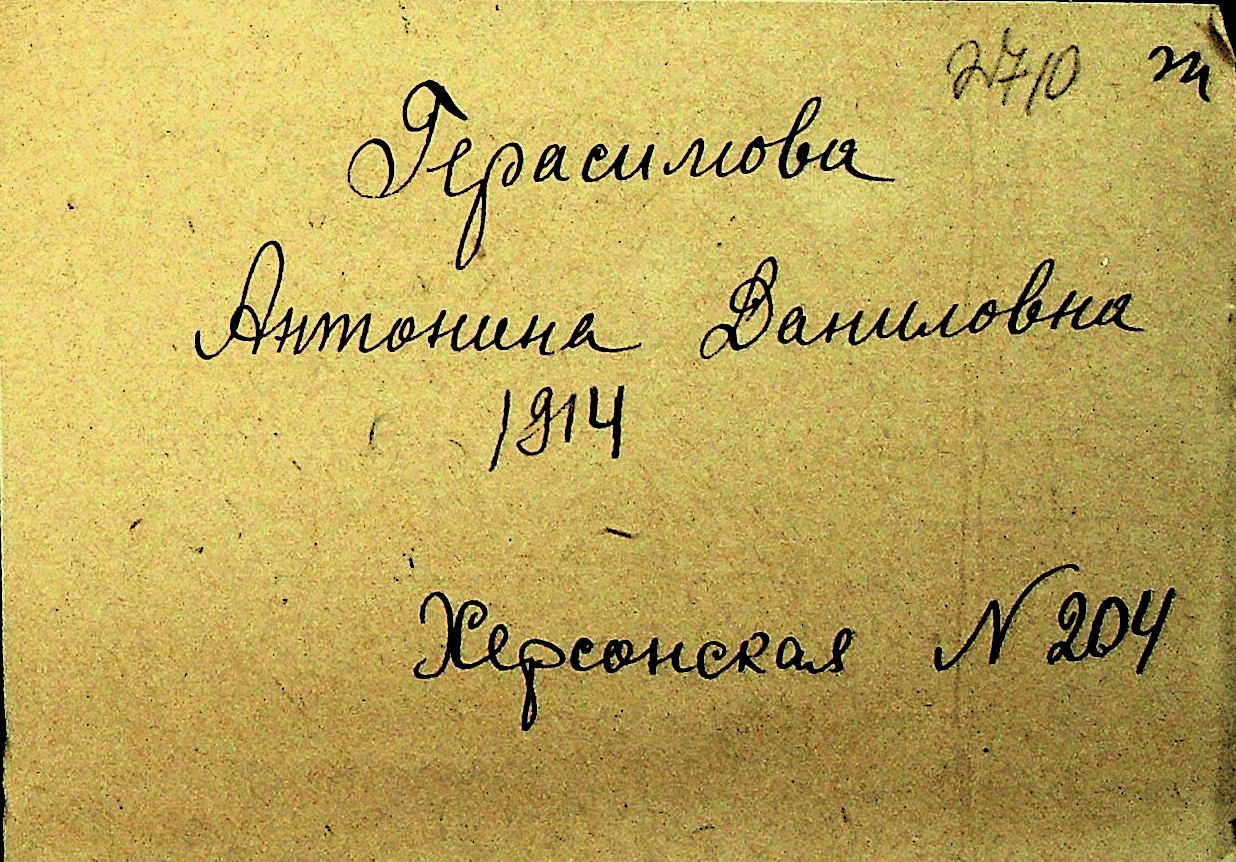 2710
Герасимова
Антонина Даниловна
1914
Херсонская N 204